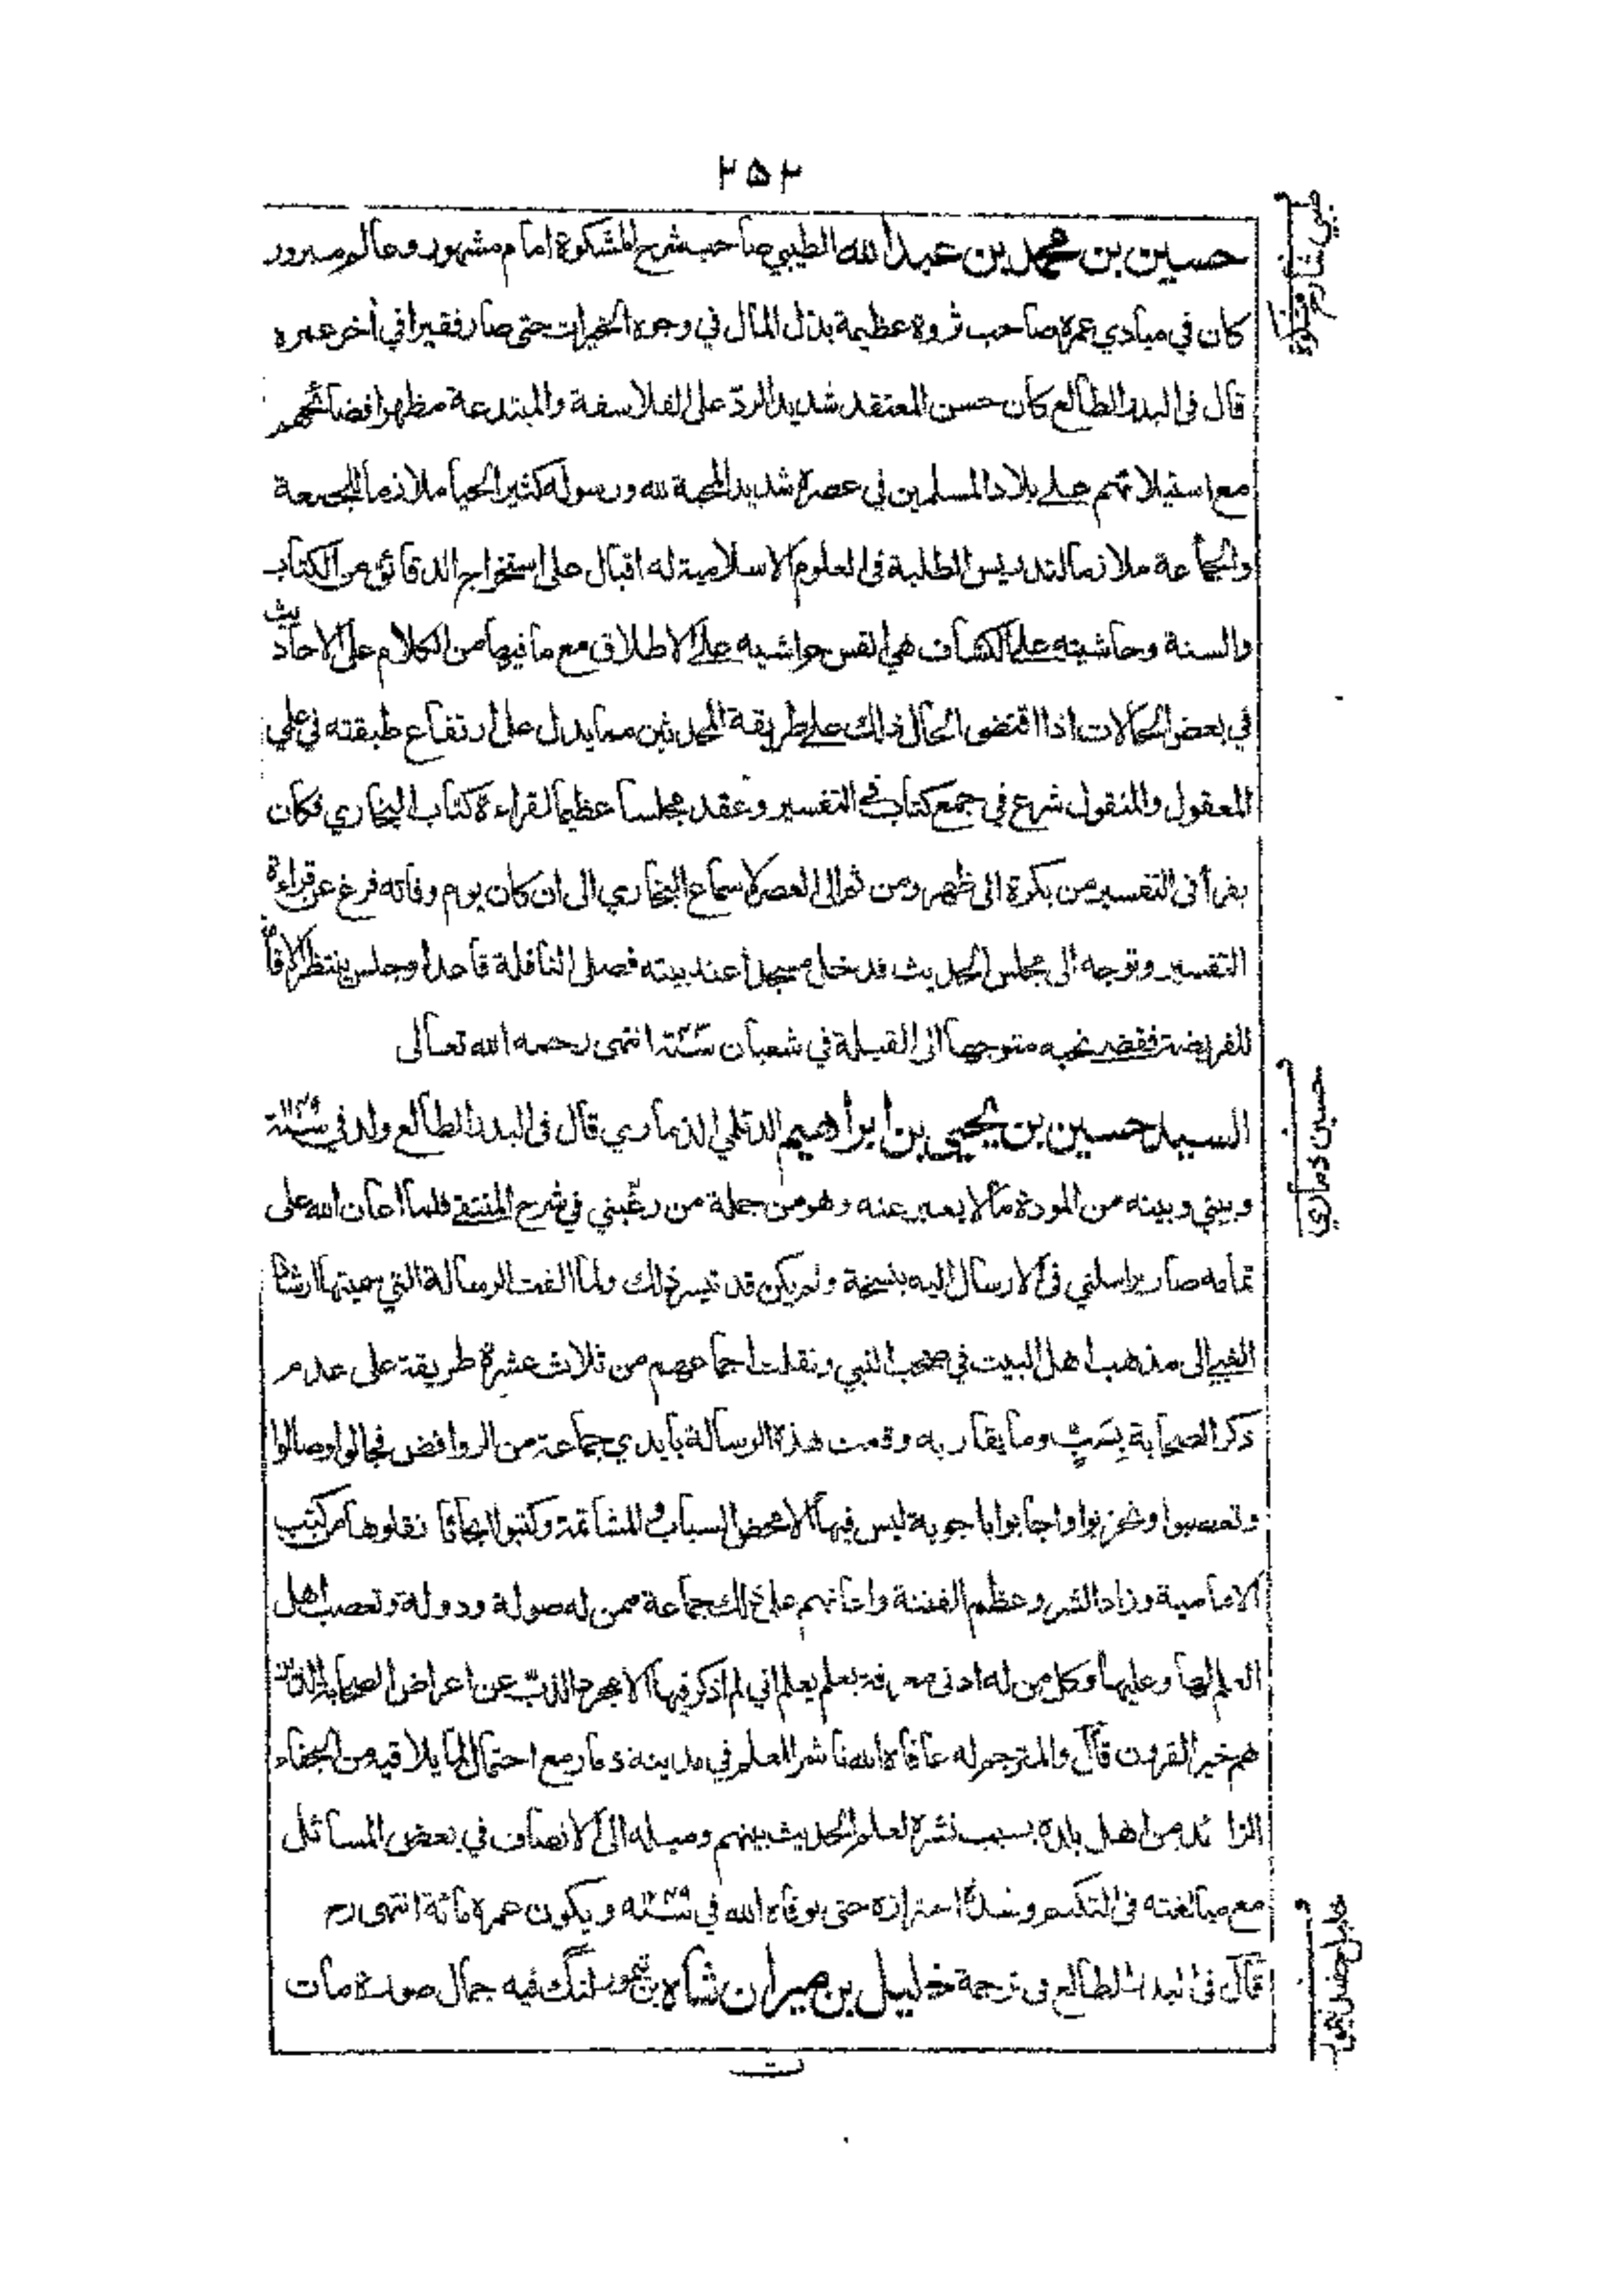 ٢٥٢
حسين بن محمد بن عبدالله الطيبي صاحب شرح المشكوة امام مشهور وعالم مبرور
كان في مبادي عمره صاحب ثروة عظيمة بذل المال في وجوه الخيرات حتى صار فقيرا في أخر عمره
قال فى البدر الطالع كان حسن المعتقد شديد الردّ على الفلاسفة والمبتدعة مظهرا فضائحهم
مع استيلائهم على بلاد المسلمين في عصره شديد المحبة لله ورسوله كثير الحيا ملازما للجمعة
والجماعة ملازما لتدريس الطلبة فى العلوم الاسلامية له اقبال على استخراج الدقائق من الكتاب
والسنة وحاشيته على الكشاف هي انفس حواشيه على الاطلاق مع ما فيها من الكلام على الاحاديث
في بعض الحالات اذا اقتضى الحال ذلك على طريقة المحدثين مما يدل على ارتفاع طبقته في علمي
المعقول والمنقول شرع في جمع كتاب في التفسير وعقد مجلسا عظيما لقراءة كتاب البخاري فكان
يقرأ فى التفسير من بكرة الى ظهر ومن ثم الى العصر لاسماع البخاري الى ان كان يوم وفاته فرغ عن قراءة
التفسير وتوجه الى مجلس الحديث فدخل مسجدا عند بيته فصلى النافلة قاعدا وجلس ينتظر الاقامة
للفريضة فقضى نحبه متوجها الى القبلة في شعبان انتهى رحمه الله تعالى
السيد حسين بن يحيى بن ابراهيم الديلمي الذماري قال فى البدر الطالع ولد في سنة ١١٤٩
وبيني وبينه من المودة مالا يعبر عنه وهو من جملة من رغّبني في شرح المنتقى فلما اعان الله على
تمامه صار يراسلني فى الارسال اليه بنسخة ولم يكن قد تيسر ذلك ولما الفت الرسالة التي سميتها ارشاد
الغبي الى مذهب اهل البيت في صحب النبي ونقلت اجماعهم من ثلاث عشرة طريقة على عدم
ذكر الصحابة بِسَبٍّ وما يقاربه وقعت هذه الرسالة بايدي جماعة من الروافض فجالوا وصالوا
وتعصبوا وتحزبوا واجابوا باجوبة ليس فيها الا محض السباب والمشاتمة وكتبوا ابحاثا نقلوها من كتب
الامامية وزاد الشر وعظم الفتنة واعانهم على ذلك جماعة ممن له صولة ودولة وتعصب اهل
العلم لها وعليها وكل من له ادنى معرفة بعلم يعلم اني لم اذكر فيها الا مجرد الذبّ عن اعراض الصحابة الذين
هم خير القرون قال والمترجم له عافاه الله ناشر للعلم في مدينة ذمار مع احتمال لما يلاقيه من الجفاء
الزائد من اهل بلده بسبب نشره لعلم الحديث بينهم وميله الى الانصاف في بعض المسائل
مع مبالغته فى التكتم وشدة احترازه حتى توفاه الله في سنة ١٢٤٩ ويكون عمره مائة انتهى رح
قال فى البدر الطالع فى ترجمة خليل بن ميران شاه بن تيمور لنگ فيه جمال صورة مات
حسين ذماري